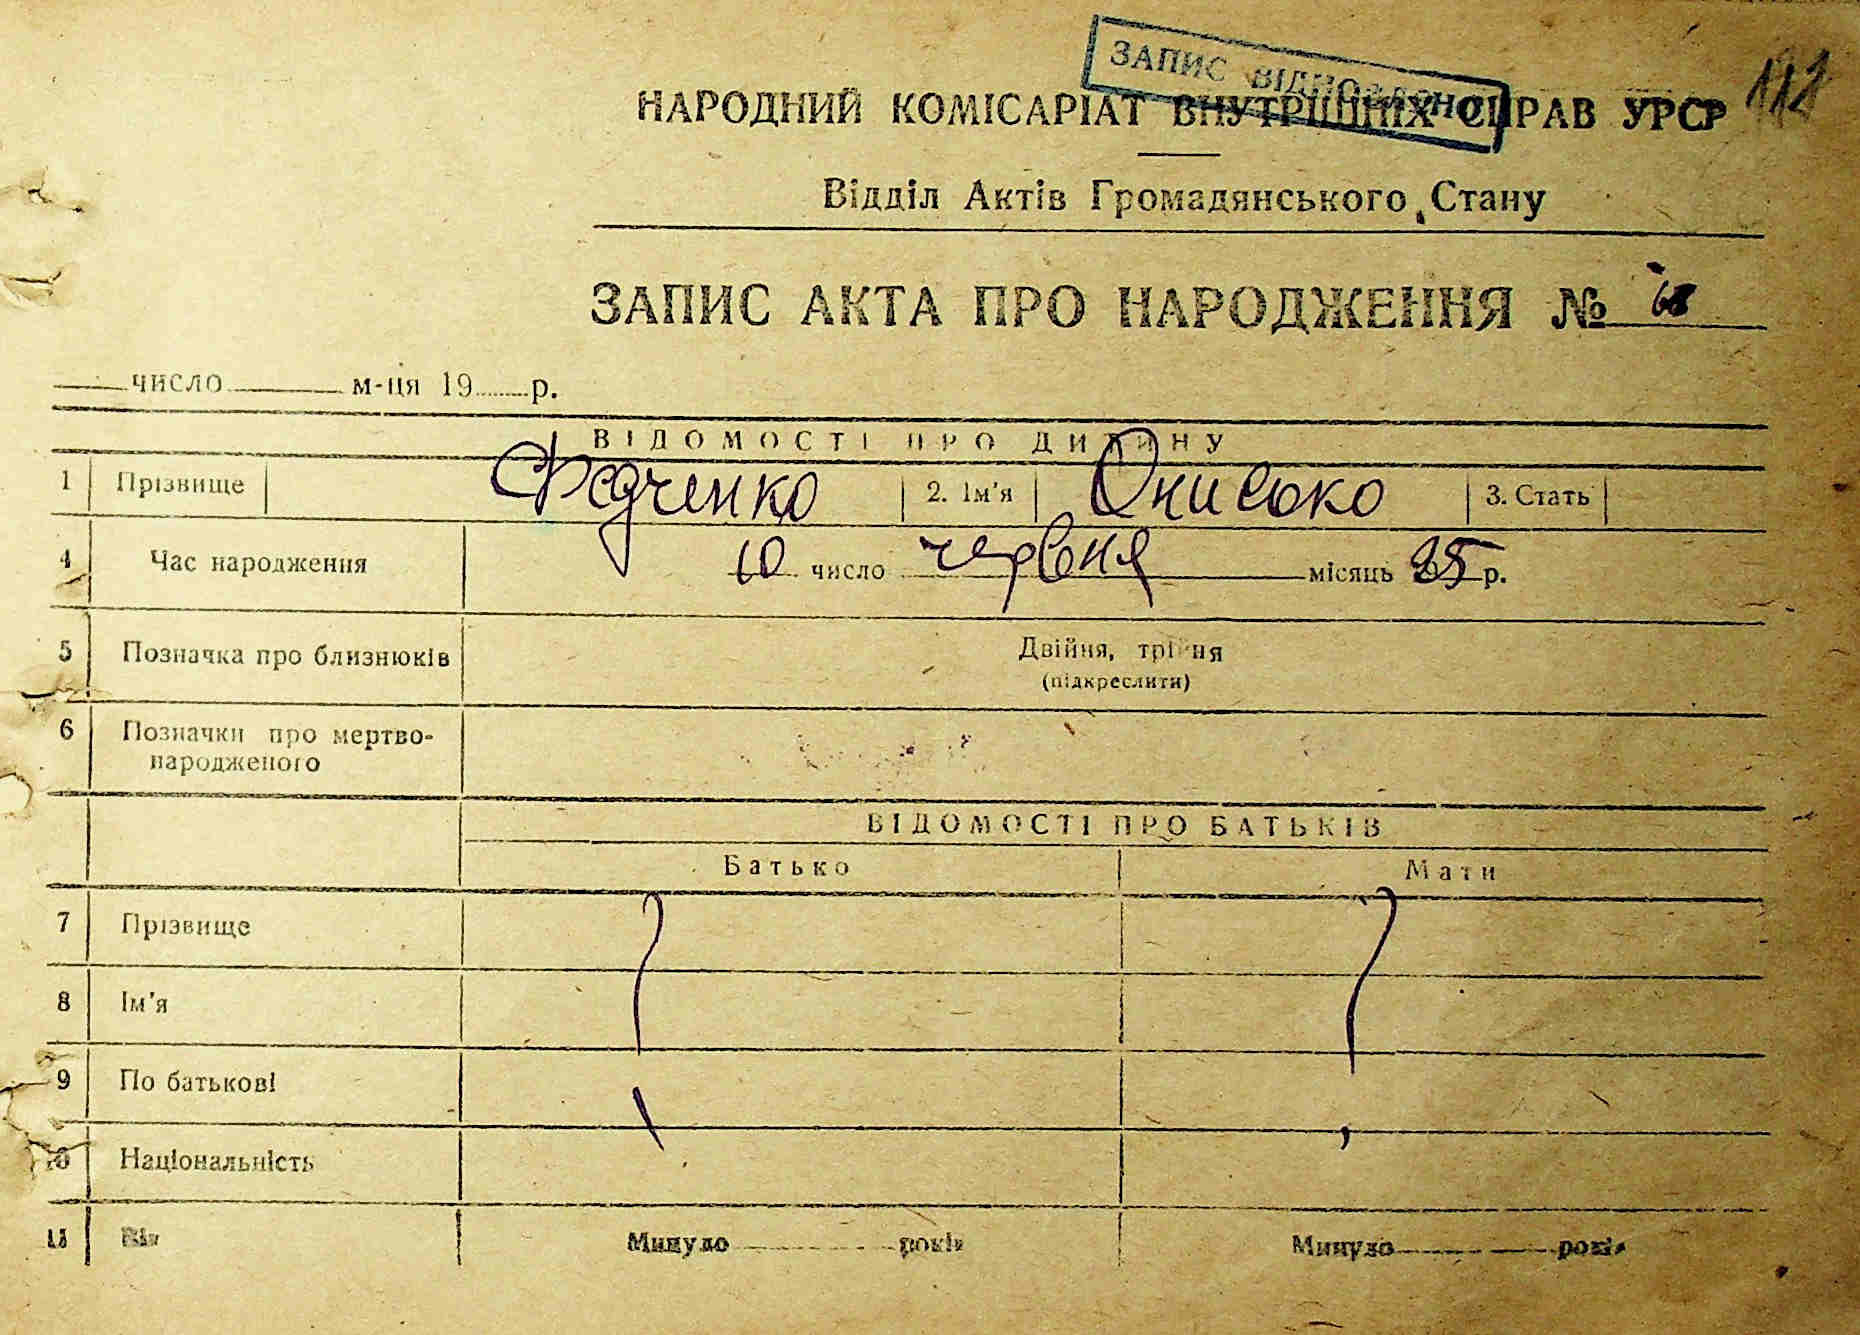 ЗАПИС ВІДНОВЛЕНО
112
НАРОДНИЙ КОМІСАРІАТ ВНУТРІШНІХ СПРАВ УРСР
Відділ Актів Громадянського Стану
ЗАПИС АКТА ПРО НАРОДЖЕННЯ № 68
число м-ця 19 р.
ВІДОМОСТІ ПРО ДИТИНУ
1 Прізвище Федченко 2. Ім'я Онисько 3. Стать
4 Час народження 10 число червня місяць 25 р.
5 Позначка про близнюків Двійня, трійня
(підкреслити)
6 Позначки про мертво-
народженого
ВІДОМОСТІ ПРО БАТЬКІВ
Батько Мати
7 Прізвище ? ?
8 Ім'я
9 По батькові
10 Національність
11 Вік Минуло років Минуло років